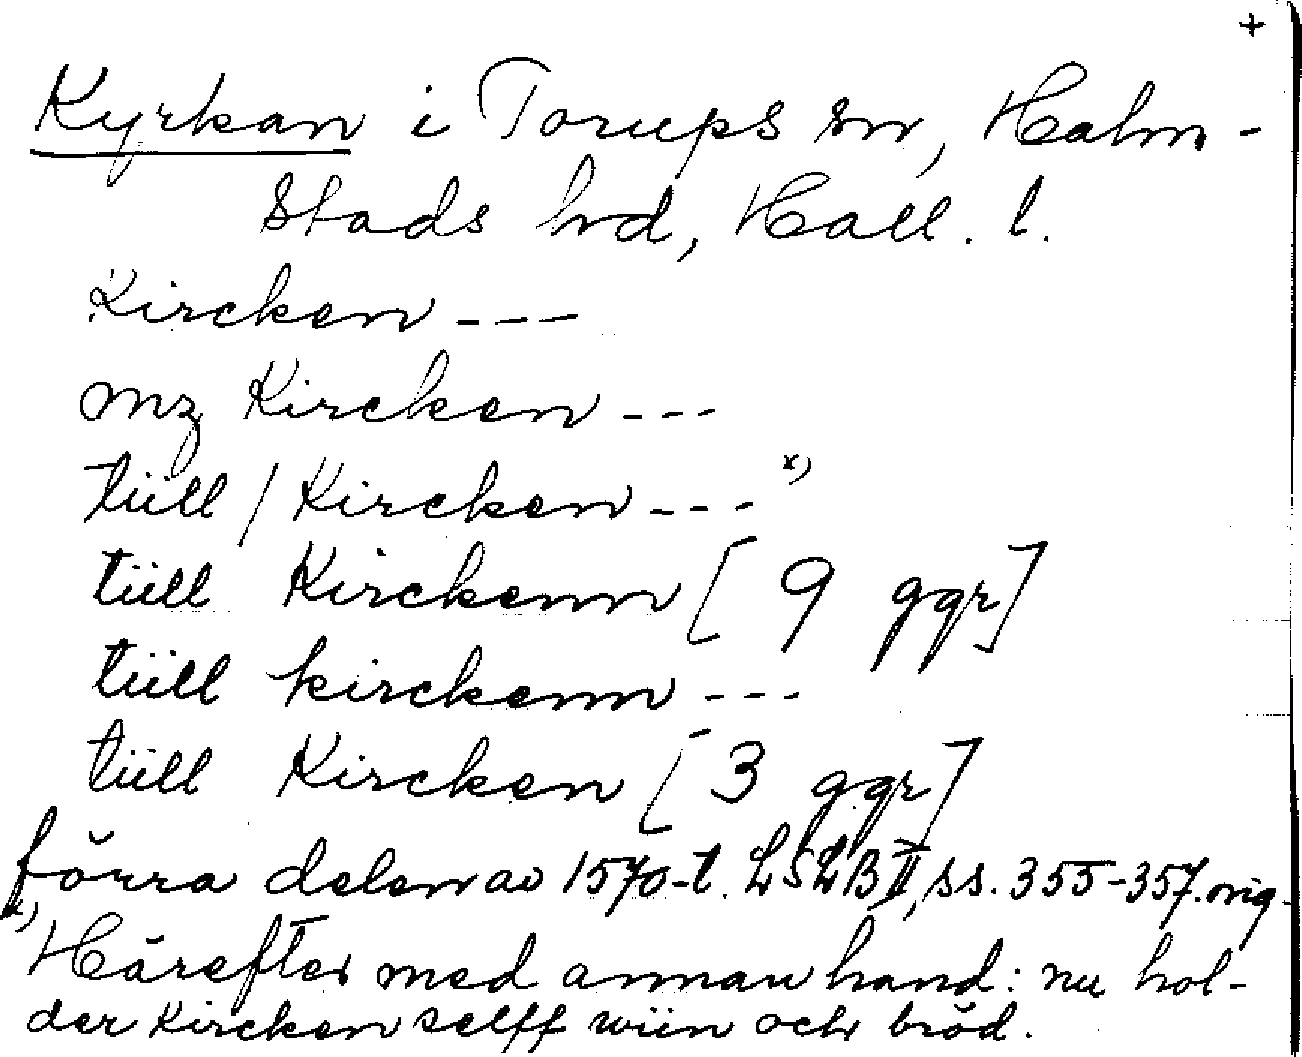 +
Kyrkan i Torups sn, Halm-
stads hd, Hall. l.
Kircken ---
mz Kircken ---
tüll / Kircken --- x)
tüll Kirckenn [9 ggr]
tüll kirckenn ---
tüll Kircken [3 ggr]
förra delen av 1570-t. LSLB II, ss. 355-357. orig.
x) Härefter med annan hand: nu hol-
der Kircken selff wiin och bröd.